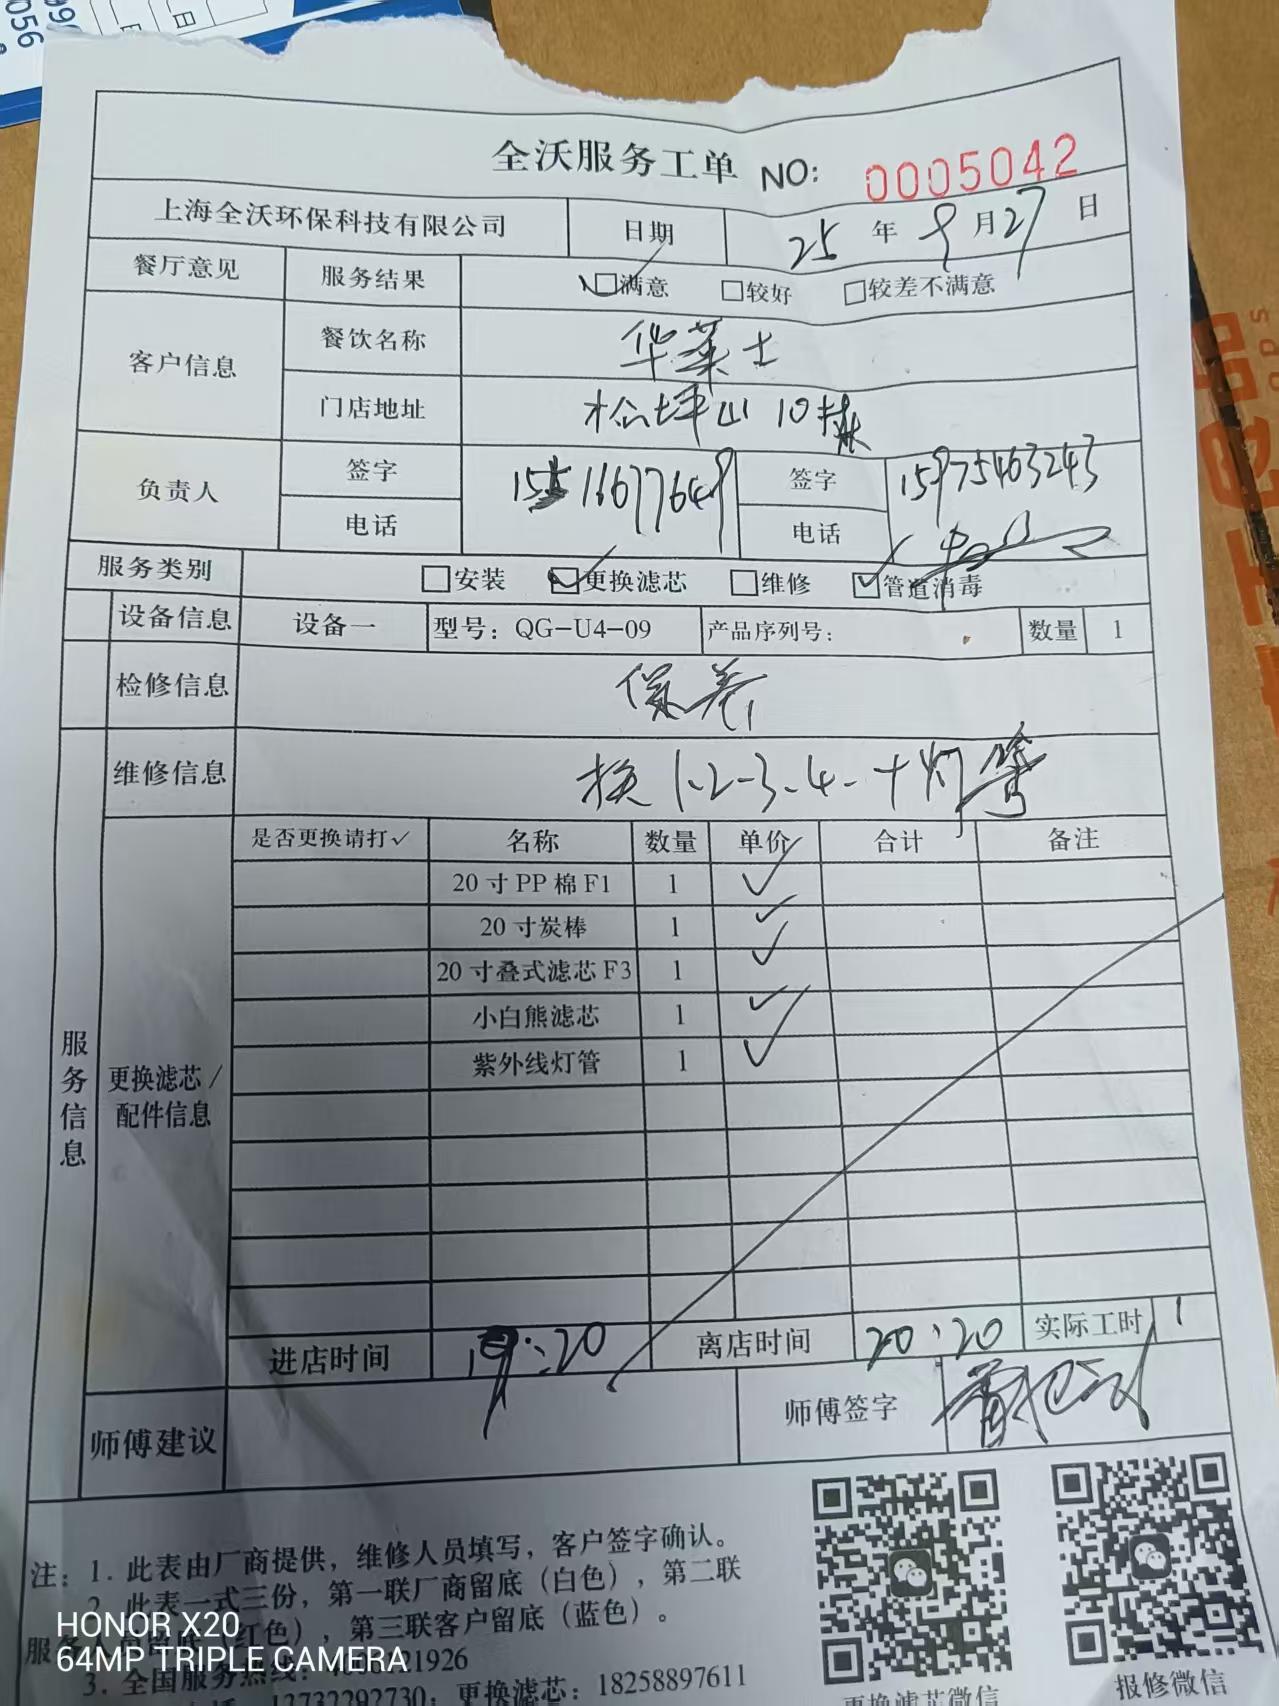 056
全沃服务工单 NO: 0005042
上海全沃环保科技有限公司 日期 25 年 9 月 27 日
餐厅意见 服务结果 ☑满意 □较好 □较差不满意
客户信息 餐饮名称 华莱士
门店地址 松坪山 10栋
负责人 签字 签字 15975463243
电话 电话
服务类别 □安装 ☑更换滤芯 □维修 ☑管道消毒
设备信息 设备一 型号：QG-U4-09 产品序列号： 数量 1
检修信息 保养
维修信息 换 1-2-3-4-十灯管
服务信息
更换滤芯/配件信息
是否更换请打✓ 名称 数量 单价 合计 备注
20寸PP棉F1 1 ✓
20寸炭棒 1 ✓
20寸叠式滤芯F3 1 ✓
小白熊滤芯 1 ✓
紫外线灯管 1 ✓
进店时间 19:20 离店时间 20:20 实际工时 1
师傅建议 师傅签字
注：1. 此表由厂商提供，维修人员填写，客户签字确认。
2. 此表一式三份，第一联厂商留底（白色），第二联
服务人员留底（红色），第三联客户留底（蓝色）。
3. 全国服务热线：
13732292730；更换滤芯：18258897611
更换滤芯微信
报修微信
HONOR X20
64MP TRIPLE CAMERA